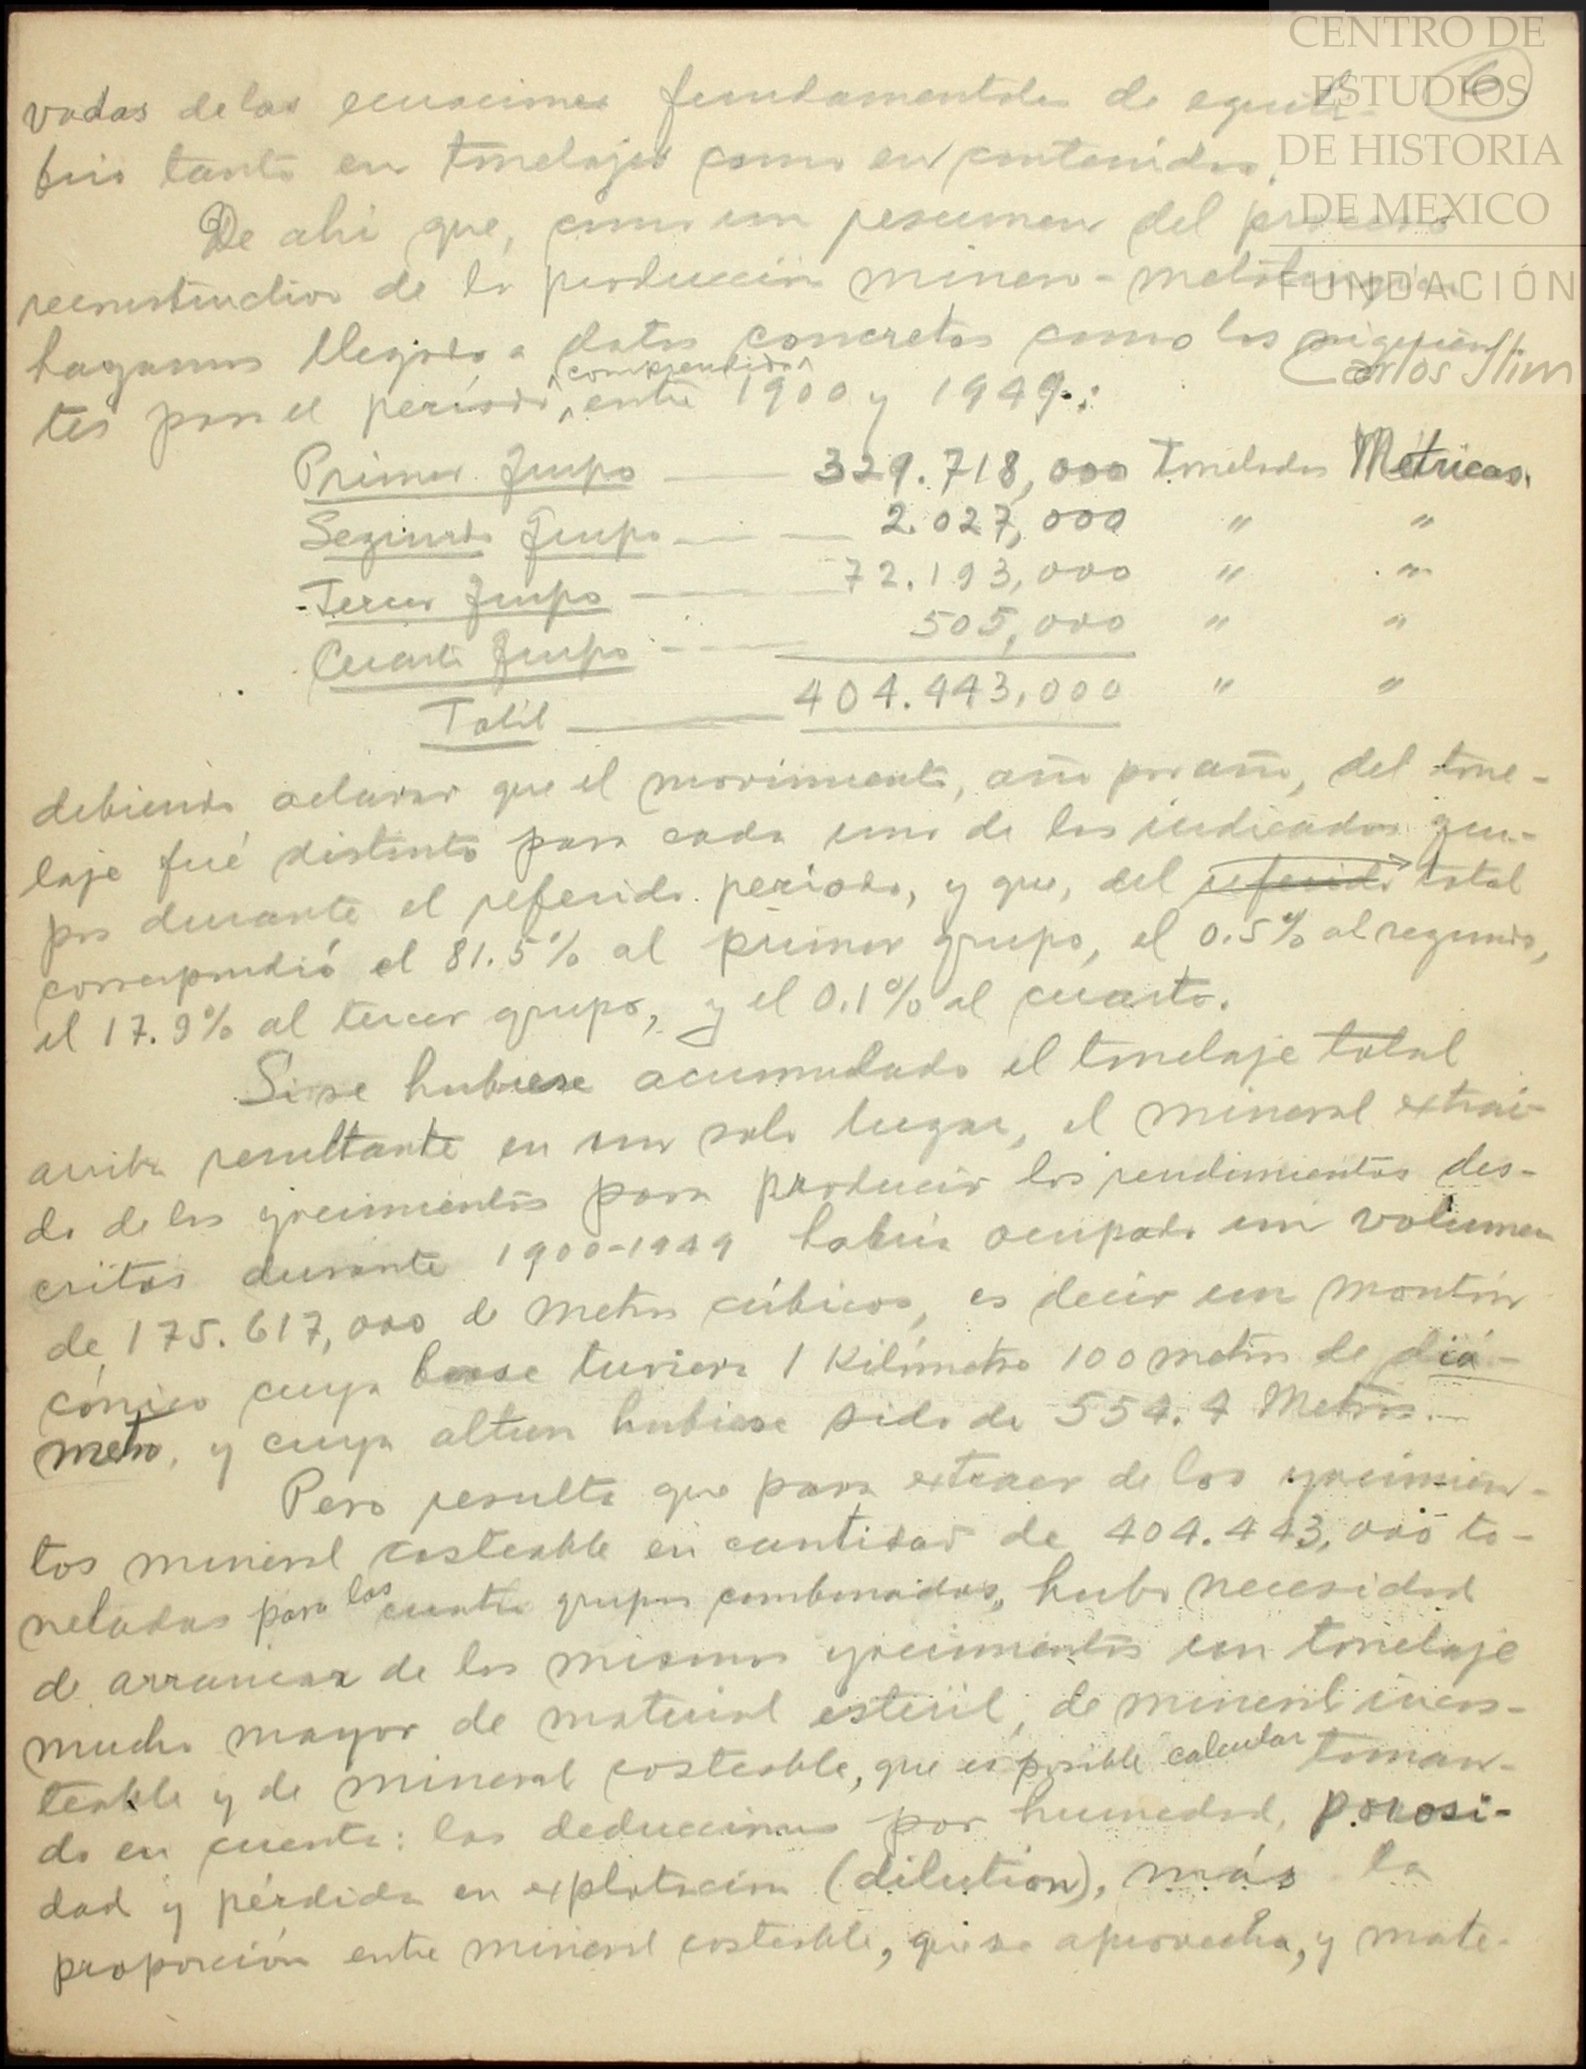 CENTRO DE
ESTUDIOS
DE HISTORIA
DE MEXICO
FUNDACIÓN
Carlos Slim
6
vadas de las ecuaciones fundamentales de equili-
brio tanto en tonelajes como en contenidos.
De ahi que, como un resumen del proceso
reconstructivo de la producción minero-metalúrgica
hagamos llegado a datos concretos como los siguien-
tes para el período comprendido entre 1900 y 1949.:
Primer Grupo — 329.718,000 Toneladas Métricas.
Segundo Grupo — 2.027,000 " "
Tercer Grupo — 72.193,000 " "
Cuarto Grupo — 505,000 " "
Total — 404.443,000 " "
debiendo aclarar que el movimiento, año por año, del tone-
laje fué distinto para cada uno de los indicados gru-
pos durante el referido periodo, y que, del referido total
correspondió el 81.5% al primer grupo, el 0.5% al segundo,
el 17.9% al tercer grupo, y el 0.1% al cuarto.
Si se hubiese acumulado el tonelaje total
arriba resultante en un solo lugar, el mineral extraí-
do de los yacimientos para producir los rendimientos des-
critos durante 1900-1949 habría ocupado un volumen
de 175.617,000 de metros cúbicos, es decir un montón
cónico cuya base tuviera 1 Kilómetro 100 metros de diá-
metro, y cuya altura hubiese sido de 554.4 Metros.—
Pero resulta que para extraer de los yacimien-
tos mineral costeable en cantidad de 404.443,000 to-
neladas para los cuatro grupos combinados, hubo necesidad
de arrancar de los mismos yacimientos un tonelaje
mucho mayor de material estéril, de mineral incos-
teable y de mineral costeable, que es posible calcular toman-
do en cuenta: las deducciones por humedad, porosi-
dad y pérdida en explotación (dilution), más la
proporción entre mineral costeable, que se aprovecha, y mate-